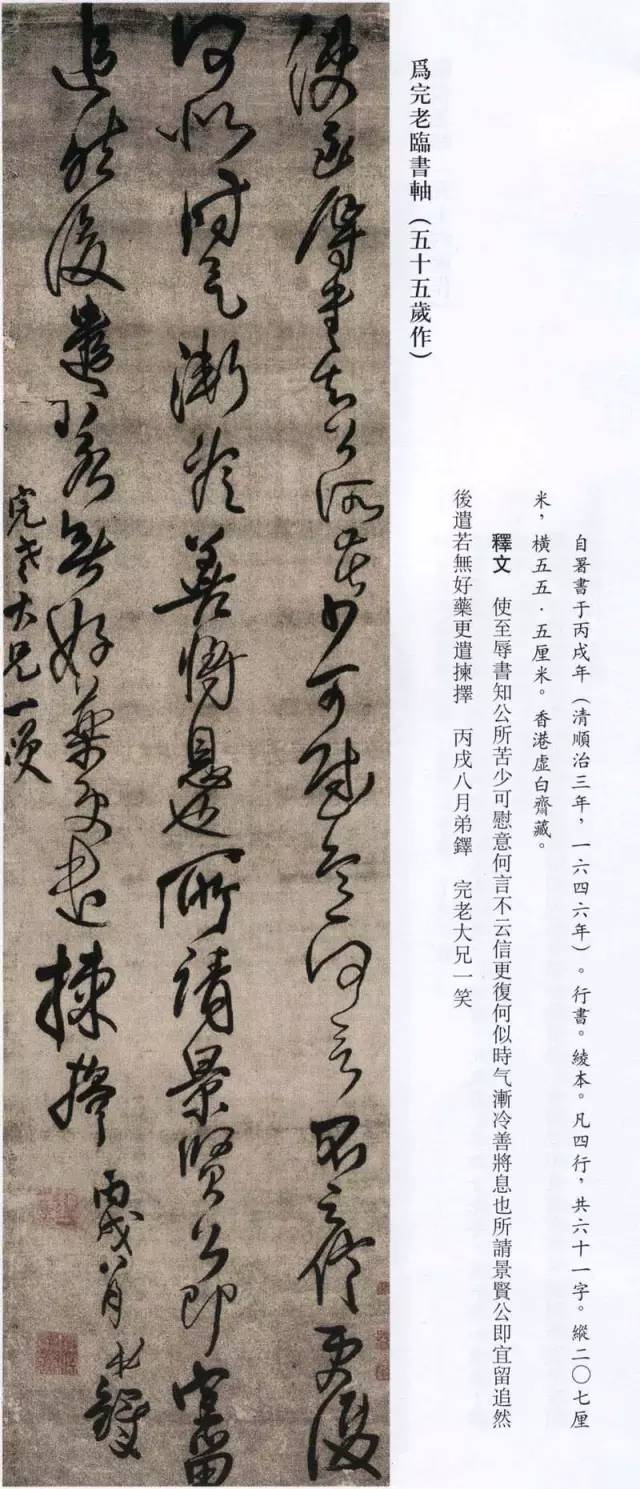 爲完老臨書軸（五十五歲作）
自署書于丙戌年（清順治三年，一六四六年）。行書。綾本。凡四行，共六十一字。縱二〇七厘
米，橫五五·五厘米。香港虛白齊藏。
釋文　使至辱書知公所苦少可慰意何言不云信更復何似時气漸冷善將息也所請景賢公即宜留追然
後遣若無好藥更遣揀擇　丙戌八月弟鐸　完老大兄一笑
使至辱書知公所苦少可慰意何言不云信更復
何似時气漸冷善將息也所請景賢公即宜留
追然後遣若無好藥更遣揀擇　丙戌八月弟鐸
完老大兄一笑